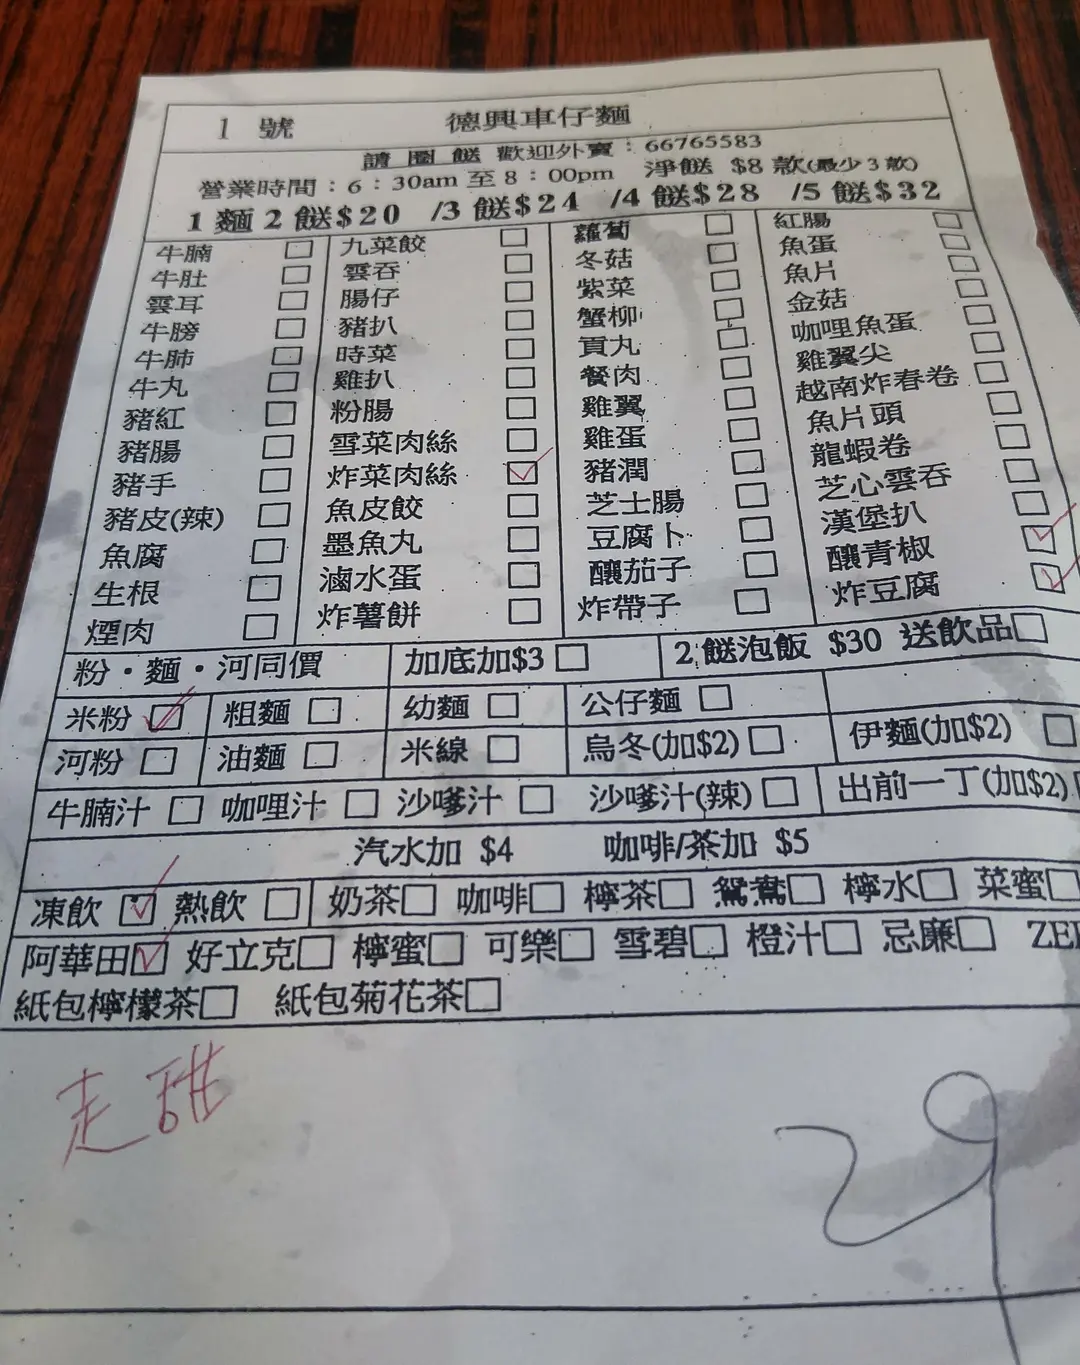 1 號 德興車仔麵
請圈餸 歡迎外賣：66765583
營業時間：6：30am 至 8：00pm 淨餸 $8 款(最少 3 款)
1 麵 2 餸$20 /3 餸$24 /4 餸$28 /5 餸$32
牛腩 □ 九菜餃 □ 蘿蔔 □ 紅腸 □
牛肚 □ 雲吞 □ 冬菇 □ 魚蛋 □
雲耳 □ 腸仔 □ 紫菜 □ 魚片 □
牛膀 □ 豬扒 □ 蟹柳 □ 金菇 □
牛肺 □ 時菜 □ 貢丸 □ 咖哩魚蛋 □
牛丸 □ 雞扒 □ 餐肉 □ 雞翼尖 □
豬紅 □ 粉腸 □ 雞翼 □ 越南炸春卷 □
豬腸 □ 雪菜肉絲 □ 雞蛋 □ 魚片頭 □
豬手 □ 炸菜肉絲 ☑ 豬潤 □ 龍蝦卷 □
豬皮(辣) □ 魚皮餃 □ 芝士腸 □ 芝心雲吞 □
魚腐 □ 墨魚丸 □ 豆腐卜 □ 漢堡扒 □
生根 □ 滷水蛋 □ 釀茄子 □ 釀青椒 ☑
煙肉 □ 炸薯餅 □ 炸帶子 □ 炸豆腐 ☑
粉・麵・河同價 加底加$3 □ 2 餸泡飯 $30 送飲品□
米粉 ☑ 粗麵 □ 幼麵 □ 公仔麵 □
河粉 □ 油麵 □ 米線 □ 烏冬(加$2) □ 伊麵(加$2) □
牛腩汁 □ 咖哩汁 □ 沙嗲汁 □ 沙嗲汁(辣) □ 出前一丁(加$2)
汽水加 $4 咖啡/茶加 $5
凍飲 ☑ 熱飲 □ 奶茶□ 咖啡□ 檸茶□ 鴛鴦□ 檸水□ 菜蜜□
阿華田☑ 好立克□ 檸蜜□ 可樂□ 雪碧□ 橙汁□ 忌廉□
紙包檸檬茶□ 紙包菊花茶□
走甜
29